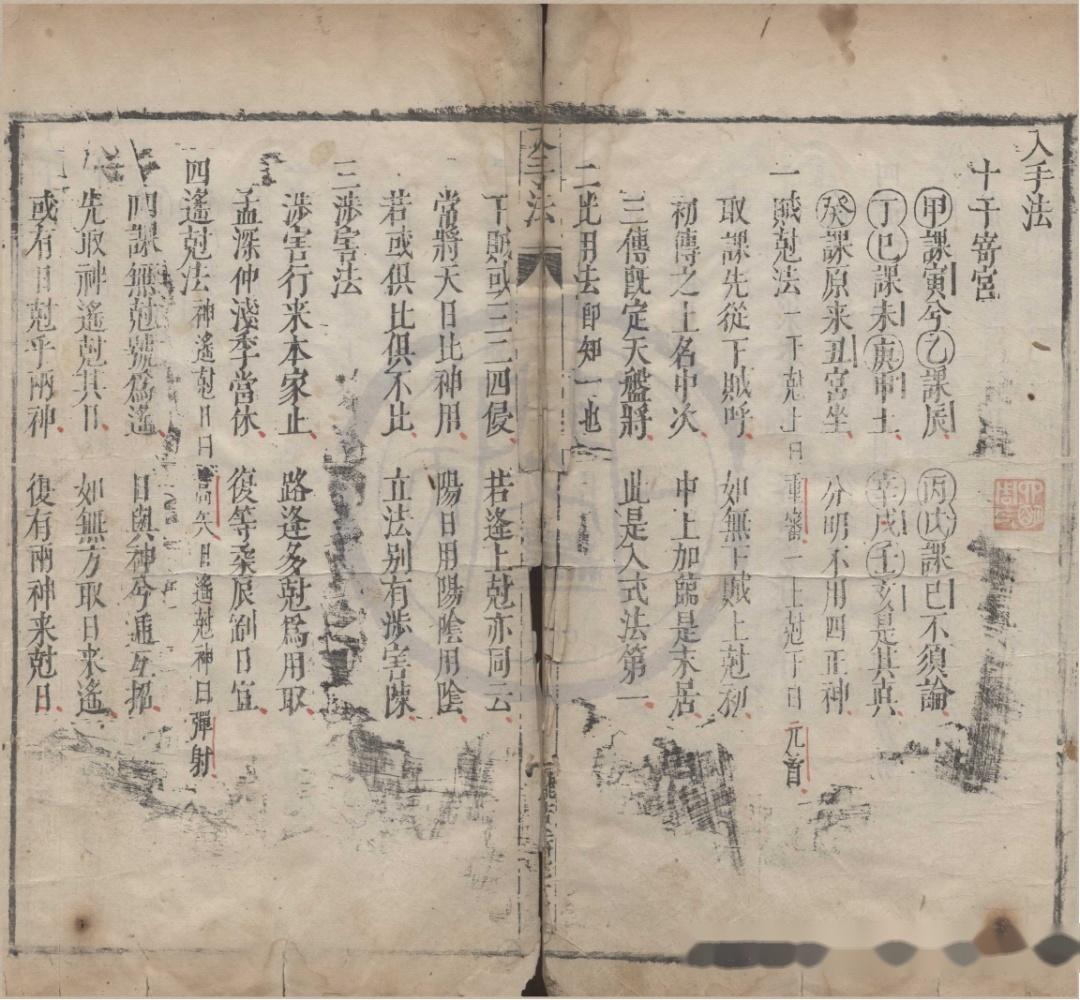 入手法
十干寄宮
甲課寅兮乙課辰 丙戊課巳不須論
丁巳課未庚申上 辛戌壬亥是其眞
癸課原来丑宮坐 分明不用四正神
一賊尅法 一下尅上曰重審 一上尅下曰元首
取課先從下賊呼 如無下賊上尅初
初傳之上名中次 中上加臨是末居
三傳旣定天盤將 此是入式法第一
二比用法 卽知一也
入手法
下賊或三二四侵 若逢上尅亦同云
常將天日比神用 陽日用陽陰用陰
若或俱比俱不比 立法别有涉害陳
三涉害法
涉害行来本家止 路逢多尅爲用取
孟深仲淺季當休 復等柔辰剛日宜
四遙尅法 神遙尅日曰蒿矢 日遙尅神曰彈射
四課無尅號爲遙 日與神兮逓互招
先取神遙尅其日 如無方取日来遙
或有日尅乎兩神 復有兩神来尅日